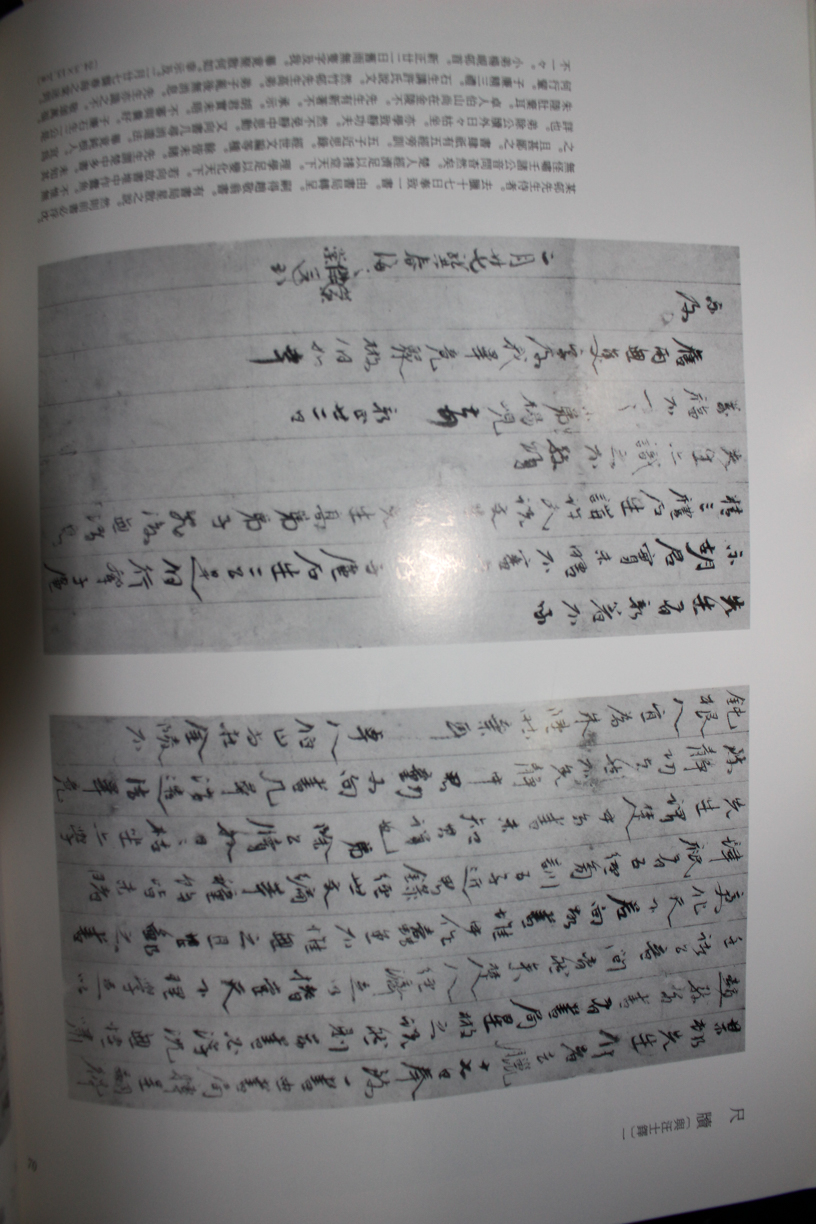 尺牘〔與汪士鐸〕一
某邨先生侍者去臘十七日奉致一書由書局轉呈嗣得
趙敬翁書有書局星散之說然則前書必浮沈無怪嘯
壬諸公音問杳然矣楚人經濟足以揩堂天下理學足以
變化天下若向故書堆中作蠹魚不惟無之且甚鄙之書
肆祇有五經旁訓五子近思錄經世文編等種餘皆未睹
先生謂楚中多書未知其詳也弟除公牘外日々枯坐亦學
致靜功夫然不免靜中思動又向書几尋消遣法畢竟
鈍根人宜為朱陸所棄耳 卓人伯山尚在金陵不
先生有新著不承
示胡君實未晤不審 子廉石生二公是何行輩子廉
精三禮石生講許氏說文 先生高弟弟子亂後無消息
先生亦識之不敬頌
萬福不一々 小弟楊峴頓首 新正廿二日
舊雨無隻字及我畢竟聚散何如幸
示及
二月廿七龔春海之 送到
某邨先生侍者。去臘十七日奉致一書。由書局轉呈。嗣得趙敬翁書。有書局星散之說。然則前書必浮沈。
無怪嘯壬諸公音問杳然矣。楚人經濟足以揩堂天下。理學足以變化天下。若向故書堆中作蠹魚。不惟無
之。且甚鄙之。書肆祇有五經旁訓。五子近思錄。經世文編等種。餘皆未睹。先生謂楚中多書。未知其
詳也。弟除公牘外日々枯坐。亦學致靜功夫。然不免靜中思動。又向書几尋消遣法。畢竟鈍根人。宜為
朱陸所棄耳。卓人伯山尚在金陵不。先生有新著不。承示。胡君實未晤。不審 子廉石生二公是
何行輩。子廉精三禮。石生講許氏說文。然竹邨先生高弟。弟子亂後無消息。先生亦識之不。敬頌萬福。
不一々。小弟楊峴頓首。新正廿二日舊雨無隻字及我。畢竟聚散何如。幸示及。二月廿七龔春海之 送到。